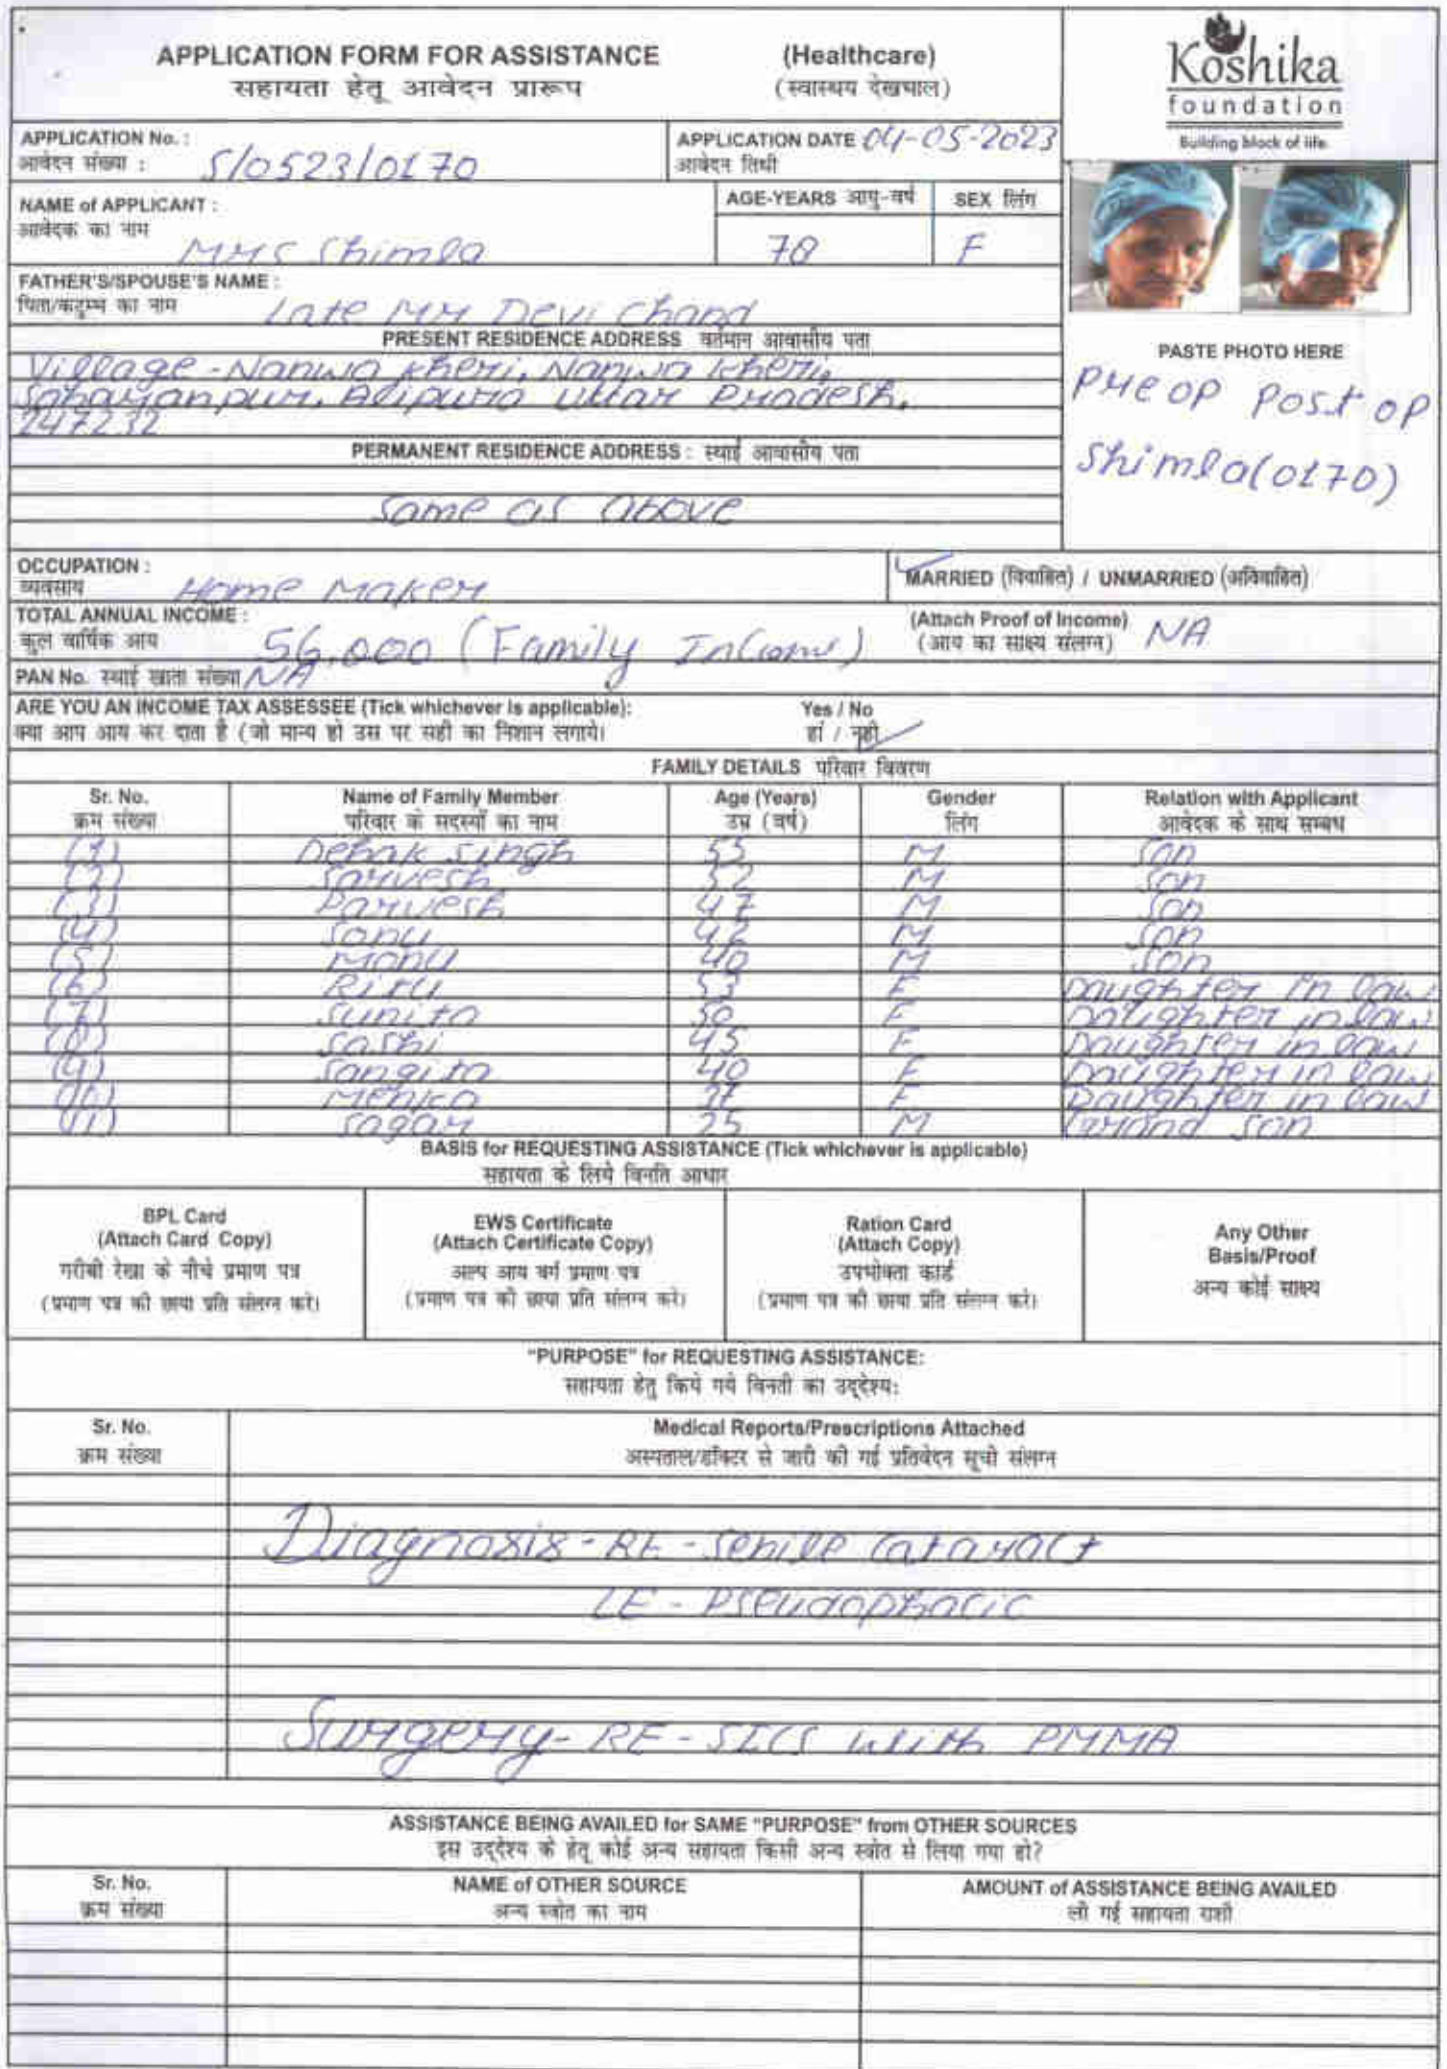 APPLICATION FORM FOR ASSISTANCE (Healthcare)
सहायता हेतू आवेदन प्रारूप (स्वास्थय देखभाल)
Koshika
foundation
Building block of life
APPLICATION No. : S/0523/0170
आवेदन संख्या :
APPLICATION DATE 04-05-2023
आवेदन तिथी
NAME of APPLICANT : Mrs Shimla
आवेदक का नाम
AGE-YEARS आयु-वर्ष 78
SEX लिंग F
FATHER'S/SPOUSE'S NAME : Late Mr Devi Chand
पिता/कटुम्ब का नाम
PRESENT RESIDENCE ADDRESS वर्तमान आवासीय पता
Village - Nanwa Kheri, Nanwa Kheri,
Saharanpur, Alipura Uttar Pradesh,
247232
PERMANENT RESIDENCE ADDRESS : स्थाई आवासीय पता
Same as above
PASTE PHOTO HERE
Pre op Post op
Shimla(0170)
OCCUPATION : Home Maker
व्यवसाय
MARRIED (विवाहित) / UNMARRIED (अविवाहित)
TOTAL ANNUAL INCOME : 56,000 (Family Income)
कुल वार्षिक आय
(Attach Proof of Income) NA
(आय का साक्ष्य संलग्न)
PAN No. स्थाई खाता संख्या NA
ARE YOU AN INCOME TAX ASSESSEE (Tick whichever is applicable): Yes / No
क्या आप आय कर दाता है (जो मान्य हो उस पर सही का निशान लगाये। हां / नही
FAMILY DETAILS परिवार विवरण
Sr. No. Name of Family Member Age (Years) Gender Relation with Applicant
क्रम संख्या परिवार के सदस्यों का नाम उम्र (वर्ष) लिंग आवेदक के साथ सम्बध
(1) Depak Singh 55 M Son
(2) Sarvesh 52 M Son
(3) Parvesh 47 M Son
(4) Sonu 42 M Son
(5) Monu 40 M Son
(6) Ritu 53 F Daughter in law
(7) Sunita 50 F Daughter in law
(8) Sashi 45 F Daughter in law
(9) Sangita 40 F Daughter in law
(10) Menka F Daughter in law
(11) Sagar 25 M Grand Son
BASIS for REQUESTING ASSISTANCE (Tick whichever is applicable)
सहायता के लिये विनति आधार
BPL Card
(Attach Card Copy)
गरीबी रेखा के नीचे प्रमाण पत्र
(प्रमाण पत्र की छाया प्रति संलग्न करे)
EWS Certificate
(Attach Certificate Copy)
अल्प आय वर्ग प्रमाण पत्र
(प्रमाण पत्र की छाया प्रति संलग्न करे)
Ration Card
(Attach Copy)
उपभोक्ता कार्ड
(प्रमाण पत्र की छाया प्रति संलग्न करे)
Any Other
Basis/Proof
अन्य कोई साक्ष्य
"PURPOSE" for REQUESTING ASSISTANCE:
सहायता हेतु किये गये विनती का उद्देश्य:
Sr. No. Medical Reports/Prescriptions Attached
क्रम संख्या अस्पताल/डॉक्टर से जारी की गई प्रतिवेदन सूची संलग्न
Diagnosis - RE - Senile Cataract
LE - Pseudophacic
Surgery - RE - SICS with PMMA
ASSISTANCE BEING AVAILED for SAME "PURPOSE" from OTHER SOURCES
इस उद्देश्य के हेतू कोई अन्य सहायता किसी अन्य स्त्रोत से लिया गया हो?
Sr. No. NAME of OTHER SOURCE AMOUNT of ASSISTANCE BEING AVAILED
क्रम संख्या अन्य स्त्रोत का नाम ली गई सहायता राशी